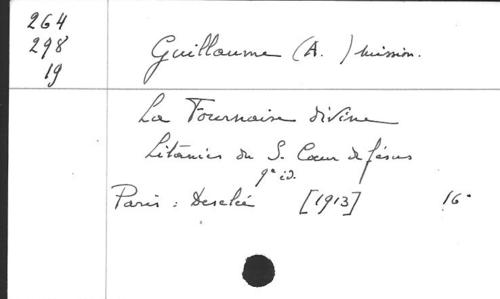 264
298
19
Guillaume (A. ) mission.
La Fournaise divine
Litanies du S. Cœur de Jésus
9e éd.
Paris : Desclée [1913] 16°